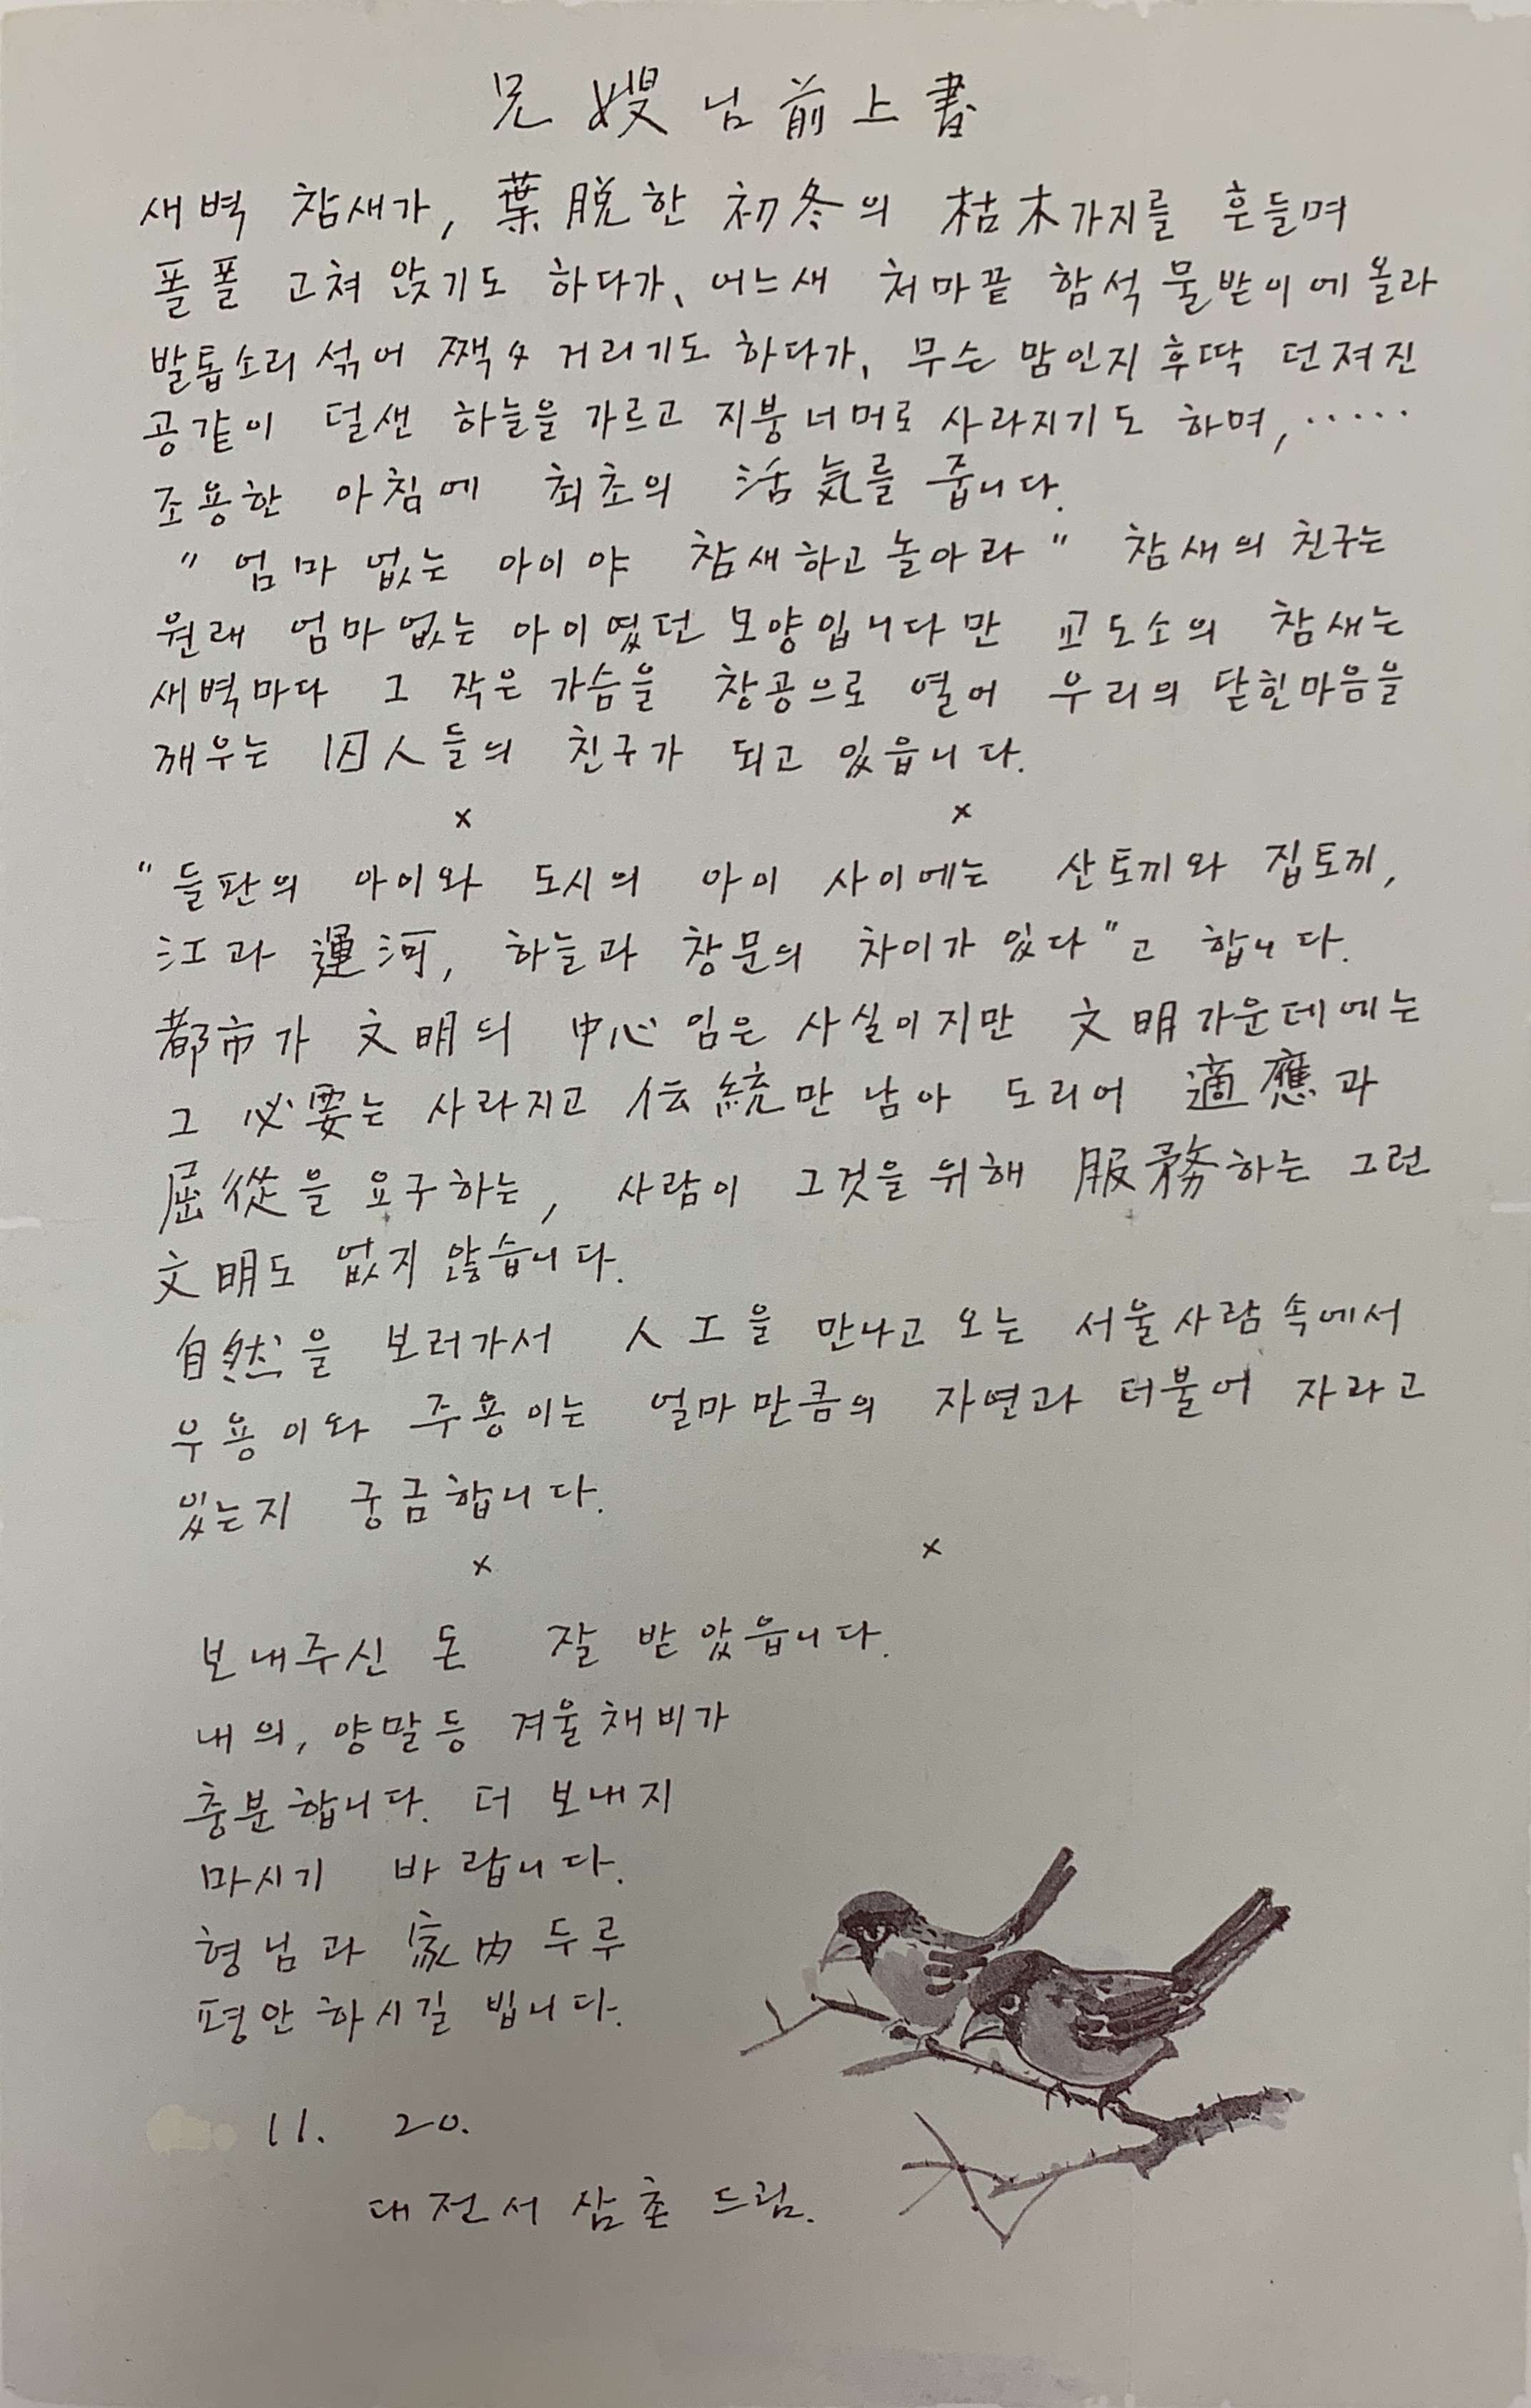 兄嫂님前上書
새벽 참새가, 葉脫한 初冬의 枯木가지를 흔들며
폴폴 고쳐 앉기도 하다가, 어느새 처마끝 함석 물받이에 올라
발톱소리 섞어 짹々 거리기도 하다가, 무슨 맘인지 후딱 던져진
공같이 덜샌 하늘을 가르고 지붕너머로 사라지기도 하며, ‥‥‥
조용한 아침에 최초의 活気를 줍니다.
"엄마 없는 아이야 참새하고 놀아라" 참새의 친구는
원래 엄마없는 아이였던 모양입니다만 교도소의 참새는
새벽마다 그 작은 가슴을 창공으로 열어 우리의 닫힌마음을
깨우는 囚人들의 친구가 되고 있읍니다.
× ×
"들판의 아이와 도시의 아이 사이에는 산토끼와 집토끼,
江과 運河, 하늘과 창문의 차이가 있다"고 합니다.
都市가 文明의 中心임은 사실이지만 文明가운데에는
그 必要는 사라지고 伝統만 남아 도리어 適應과
屈從을 요구하는, 사람이 그것을 위해 服務하는 그런
文明도 없지 않습니다.
自然을 보러가서 人工을 만나고 오는 서울사람속에서
우용이와 주용이는 얼마만큼의 자연과 더불어 자라고
있는지 궁금합니다.
× ×
보내주신 돈 잘 받았읍니다.
내의, 양말등 겨울채비가
충분합니다. 더 보내지
마시기 바랍니다.
형님과 家內두루
평안하시길 빕니다.
11. 20.
대전서 삼촌 드림.